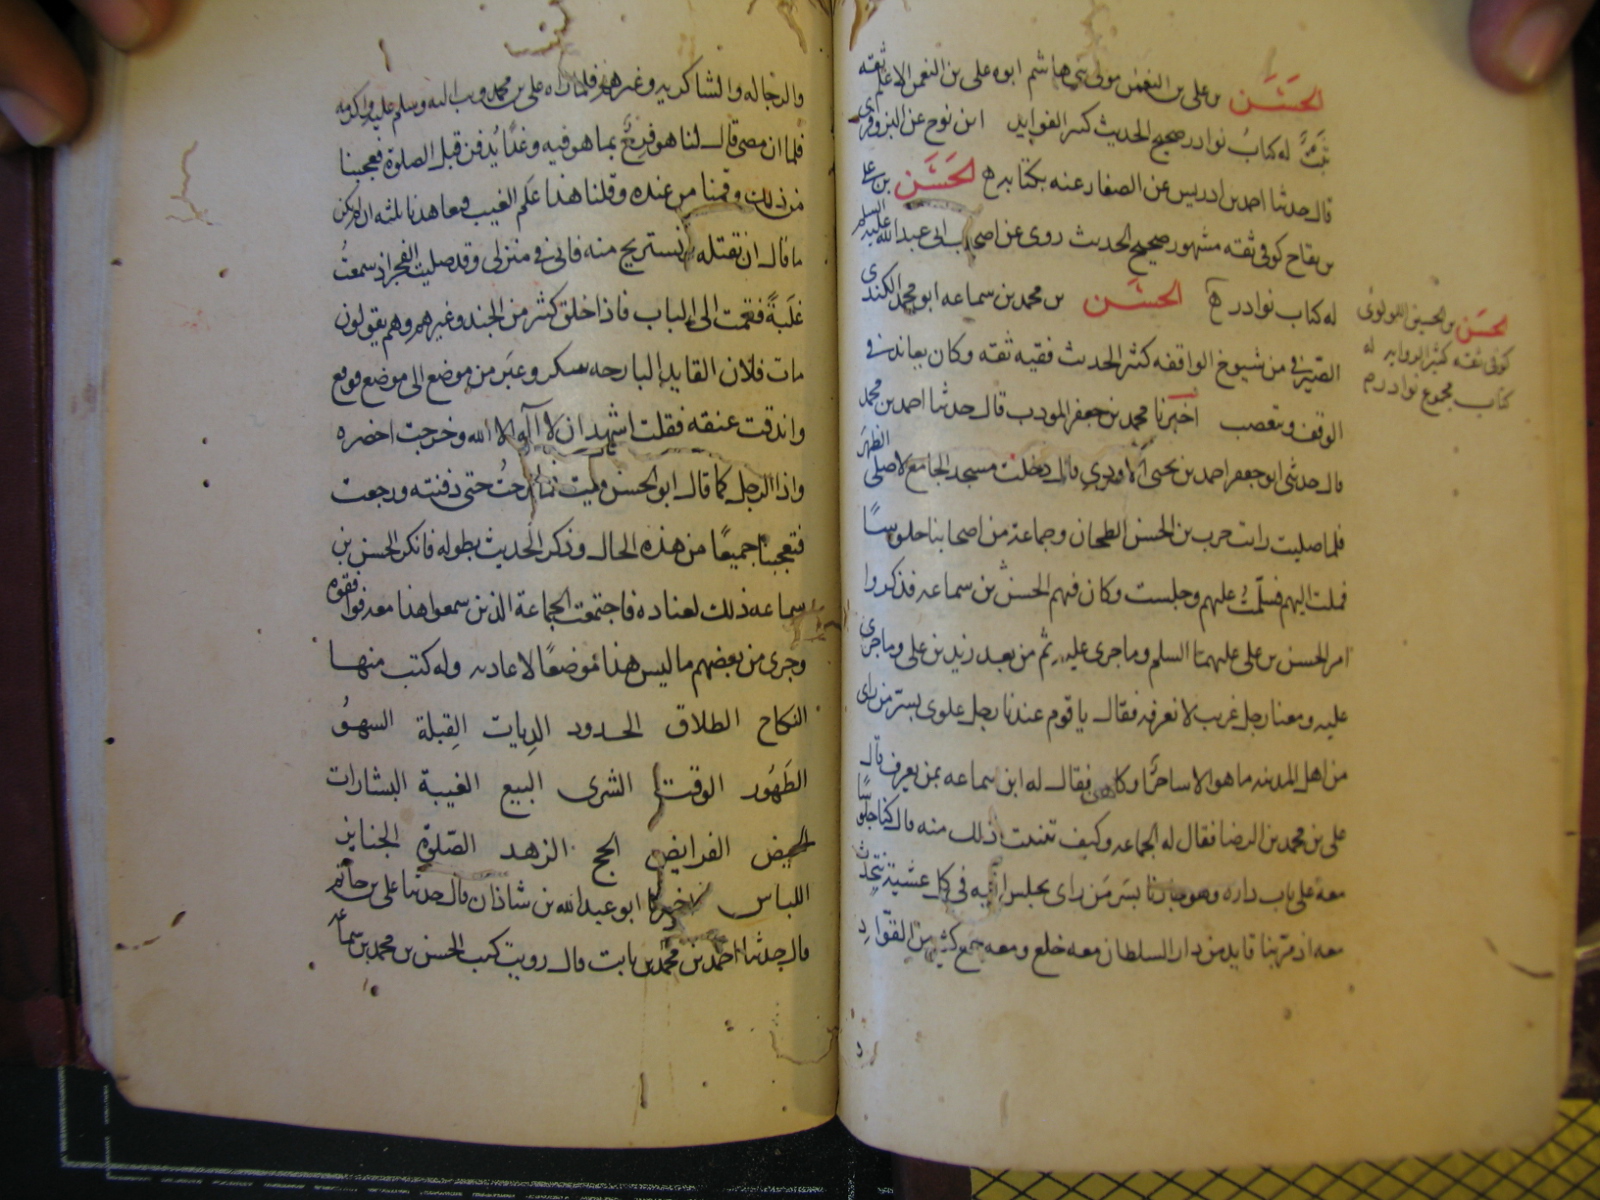 الحسن بن علي بن النعمن مولى بني هاشم ابوه علي بن النعمن الاعلم ثقه
ثبت له كتاب نوادر صحيح الحديث كثير الفوايد ابن نوح عن البزوفري
قال حدثنا احمد بن ادريس عن الصفار عنه بكتابه الحسن بن علي
بن بقاح كوفي ثقه مشهور صحيح الحديث روى عن اصحاب ابي عبدالله عليه السلم
له كتاب نوادر الحسن بن محمد بن سماعه ابو محمد الكندي
الصيرفي من شيوخ الواقفه كثير الحديث فقيه ثقه وكان يعاند في
الوقف ويتعصب اخبرنا محمد بن جعفر المودب قال حدثنا احمد بن محمد
قال حدثني ابو جعفر احمد بن يحيى الاودي قال دخلت مسجد الجامع لاصلي الظهر
فلما صليت رايت حرب بن الحسن الطحان وجماعة من اصحابنا جلوسًا
فملت اليهم فسلمت عليهم وجلست وكان فيهم الحسن بن سماعه فذكروا
امر الحسن بن علي عليهما السلم وما جرى عليه ثم من بعد زيد بن علي وما جرى
عليه ومعنا رجل غريب لا نعرفه فقال يا قوم عندنا رجل علوي بسر من راى
من اهل المدينه ما هو الا ساحر او كاهن فقال له ابن سماعه بمن يعرف قال
علي بن محمد بن الرضا فقال له الجماعه وكيف تبينت ذلك منه قال كنا جلوسًا
معه على باب داره وهو جارنا بسر من راى نجلس اليه في كل عشية نتحدث
معه اذ مر بنا قايد من دار السلطان معه خلع ومعه جمع كثير من القواد
الحسن بن الحسين اللولوي
كوفي ثقه كثير الروايه له
كتاب مجموع نوادر
والرجاله والشاكريه وغيرهم فلما راه علي بن محمد وثب اليه وسلم عليه واكرمه
فلما ان مضى قال لنا هو فرح بما هو فيه وغدًا يُدفن قبل الصلوة فعجبنا
من ذلك وقمنا من عنده وقلنا هذا علم الغيب فتعاهدنا ثلثه ان لم يكن
ما قال ان نقتله ونستريح منه فاني في منزلي وقد صليت الفجر اذ سمعتُ
غلبةً فقمت الى الباب فاذا خلق كثير من الجند وغيرهم وهم يقولون
مات فلان القايد البارحه سكر وعبر من موضع الى موضع فوقع
واندقت عنقه فقلت اشهد ان لا اله الا الله وخرجت احضره
واذا الرجل كما قال ابو الحسن ميت فما برحتُ حتى دفنته ورجعت
فتعجبنا جميعًا من هذه الحال وذكر الحديث بطوله فانكر الحسن بن
سماعه ذلك لعناده فاجتمعت الجماعة الذين سمعوا هذا معه فوافقوه
وجرى من بعضهم ما ليس هذا موضعًا لاعادته وله كتب منها
النكاح الطلاق الحدود الديات القبلة السهوُ
الطَهُور الوقت الشرى البيع الغيبة البشارات
الحيض الفرايض الحج الزهد الصلوة الجنايز
اللباس اخبرنا ابو عبدالله بن شاذان قال حدثنا علي بن حاتم
قال حدثنا احمد بن محمد بن ثابت قال رويت كتب الحسن بن محمد بن سماعه